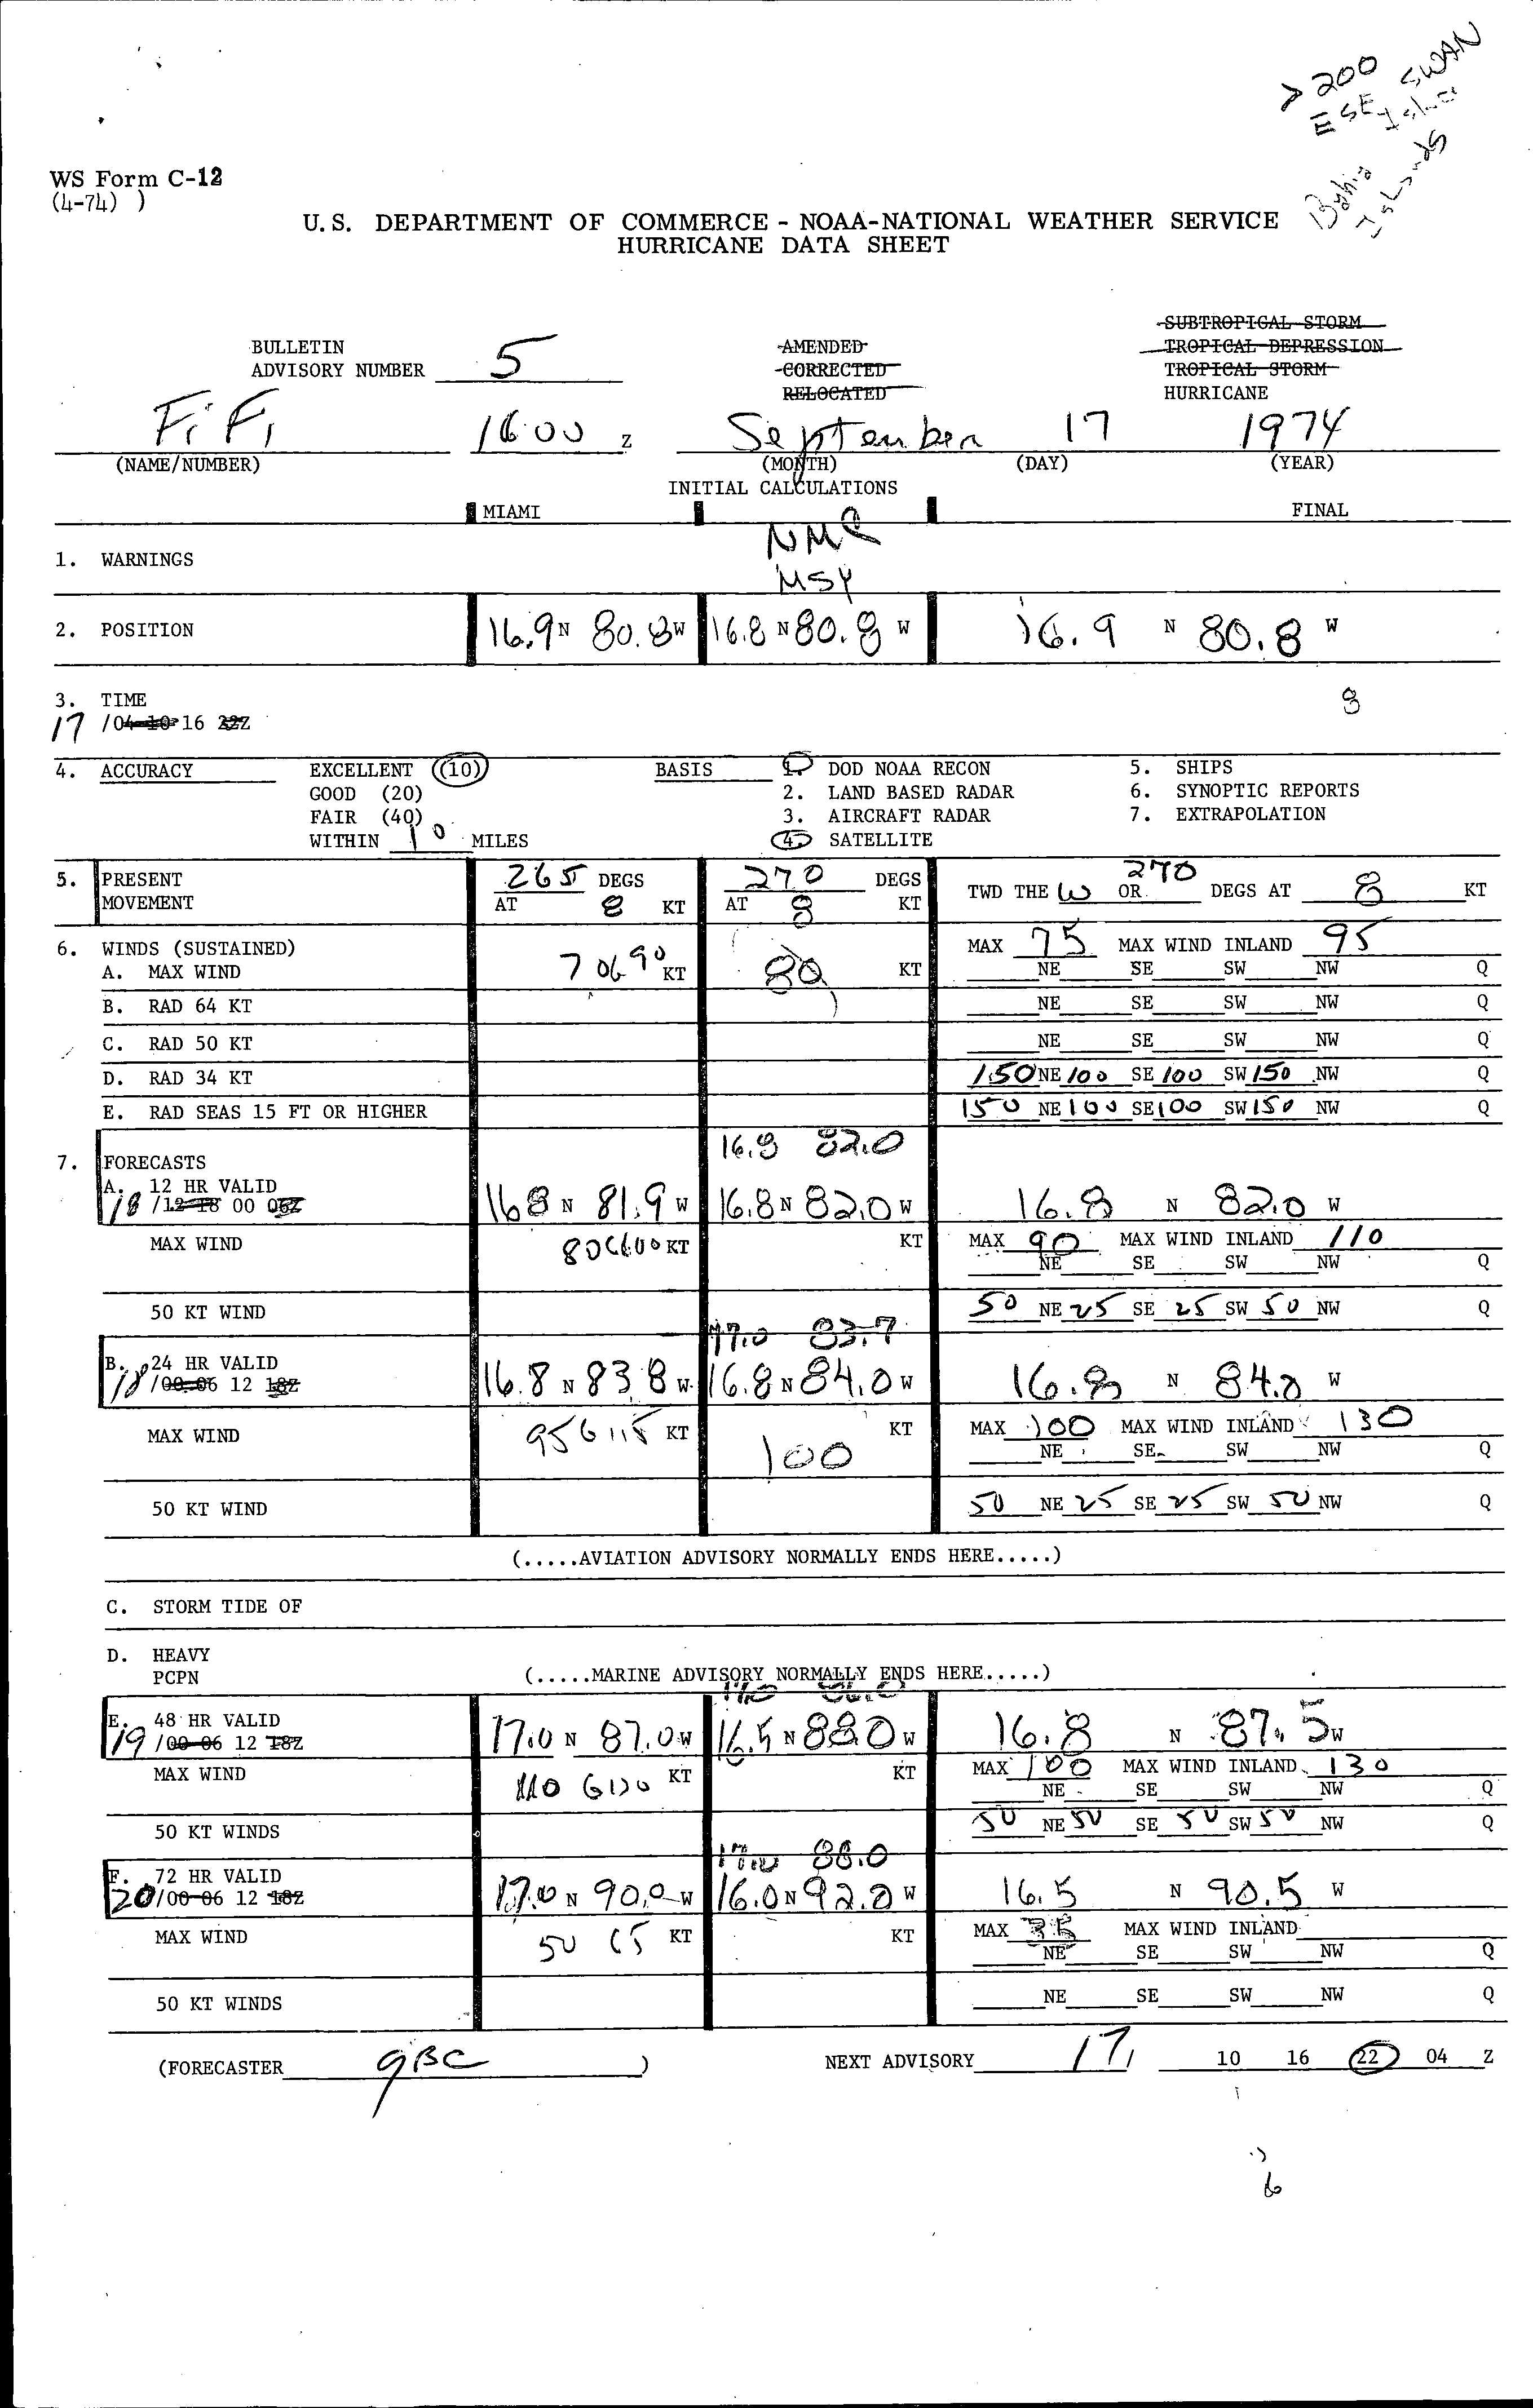 > 200
ESE SWAN
Bahia Islands
WS Form C-12
(4-74) )
U.S. DEPARTMENT OF COMMERCE - NOAA-NATIONAL WEATHER SERVICE
HURRICANE DATA SHEET
SUBTROPICAL STORM
BULLETIN AMENDED TROPICAL DEPRESSION
ADVISORY NUMBER 5 CORRECTED TROPICAL STORM
RELOCATED HURRICANE
FiFi 1600 Z September 17 1974
(NAME/NUMBER) (MONTH) (DAY) (YEAR)
INITIAL CALCULATIONS
MIAMI FINAL
NMC
1. WARNINGS
MSY
2. POSITION 16.9 N 80.8 W 16.8 N 80.8 W 16.9 N 80.8 W
3. TIME 8
17 /04 10 16 22Z
4. ACCURACY EXCELLENT (10) BASIS 1. DOD NOAA RECON 5. SHIPS
GOOD (20) 2. LAND BASED RADAR 6. SYNOPTIC REPORTS
FAIR (40) 3. AIRCRAFT RADAR 7. EXTRAPOLATION
WITHIN 10 MILES 4. SATELLITE
5. PRESENT 265 DEGS 270 DEGS TWD THE W OR 270 DEGS AT 8 KT
MOVEMENT AT 8 KT AT 8 KT
6. WINDS (SUSTAINED) MAX 75 MAX WIND INLAND 95
A. MAX WIND 70 G 90 KT 80 KT NE SE SW NW Q
B. RAD 64 KT NE SE SW NW Q
C. RAD 50 KT NE SE SW NW Q
D. RAD 34 KT 150 NE 100 SE 100 SW 150 NW Q
E. RAD SEAS 15 FT OR HIGHER 150 NE 100 SE 100 SW 150 NW Q
16.8 82.0
7. FORECASTS
A. 12 HR VALID
18 /12 18 00 06Z 16 8 N 81.9 W 16.8 N 82.0 W 16.8 N 82.0 W
MAX WIND 80 G 100 KT KT MAX 90 MAX WIND INLAND 110
NE SE SW NW Q
50 KT WIND 50 NE 25 SE 25 SW 50 NW Q
17.0 83.7
B. 24 HR VALID
18 /00 06 12 18Z 16.8 N 83 8 W 16.8 N 84.0 W 16.8 N 84.0 W
MAX WIND 95 G 115 KT 100 KT MAX 100 MAX WIND INLAND 130
NE SE SW NW Q
50 KT WIND 50 NE 25 SE 25 SW 50 NW Q
(.....AVIATION ADVISORY NORMALLY ENDS HERE.....)
C. STORM TIDE OF
D. HEAVY
PCPN (.....MARINE ADVISORY NORMALLY ENDS HERE.....)
E. 48 HR VALID
19 /00 06 12 18Z 17.0 N 87.0 W 16.5 N 88.0 W 16.8 N 87.5 W
MAX WIND 110 G 130 KT KT MAX 100 MAX WIND INLAND 130
NE SE SW NW Q
50 KT WINDS 50 NE 50 SE 50 SW 50 NW Q
17.0 88.0
F. 72 HR VALID
20 /00 06 12 18Z 17.0 N 90.0 W 16.0 N 92.0 W 16.5 N 90.5 W
MAX WIND 50 65 KT KT MAX 35 MAX WIND INLAND
NE SE SW NW Q
50 KT WINDS NE SE SW NW Q
(FORECASTER GBC ) NEXT ADVISORY 17/ 10 16 22 04 Z
6